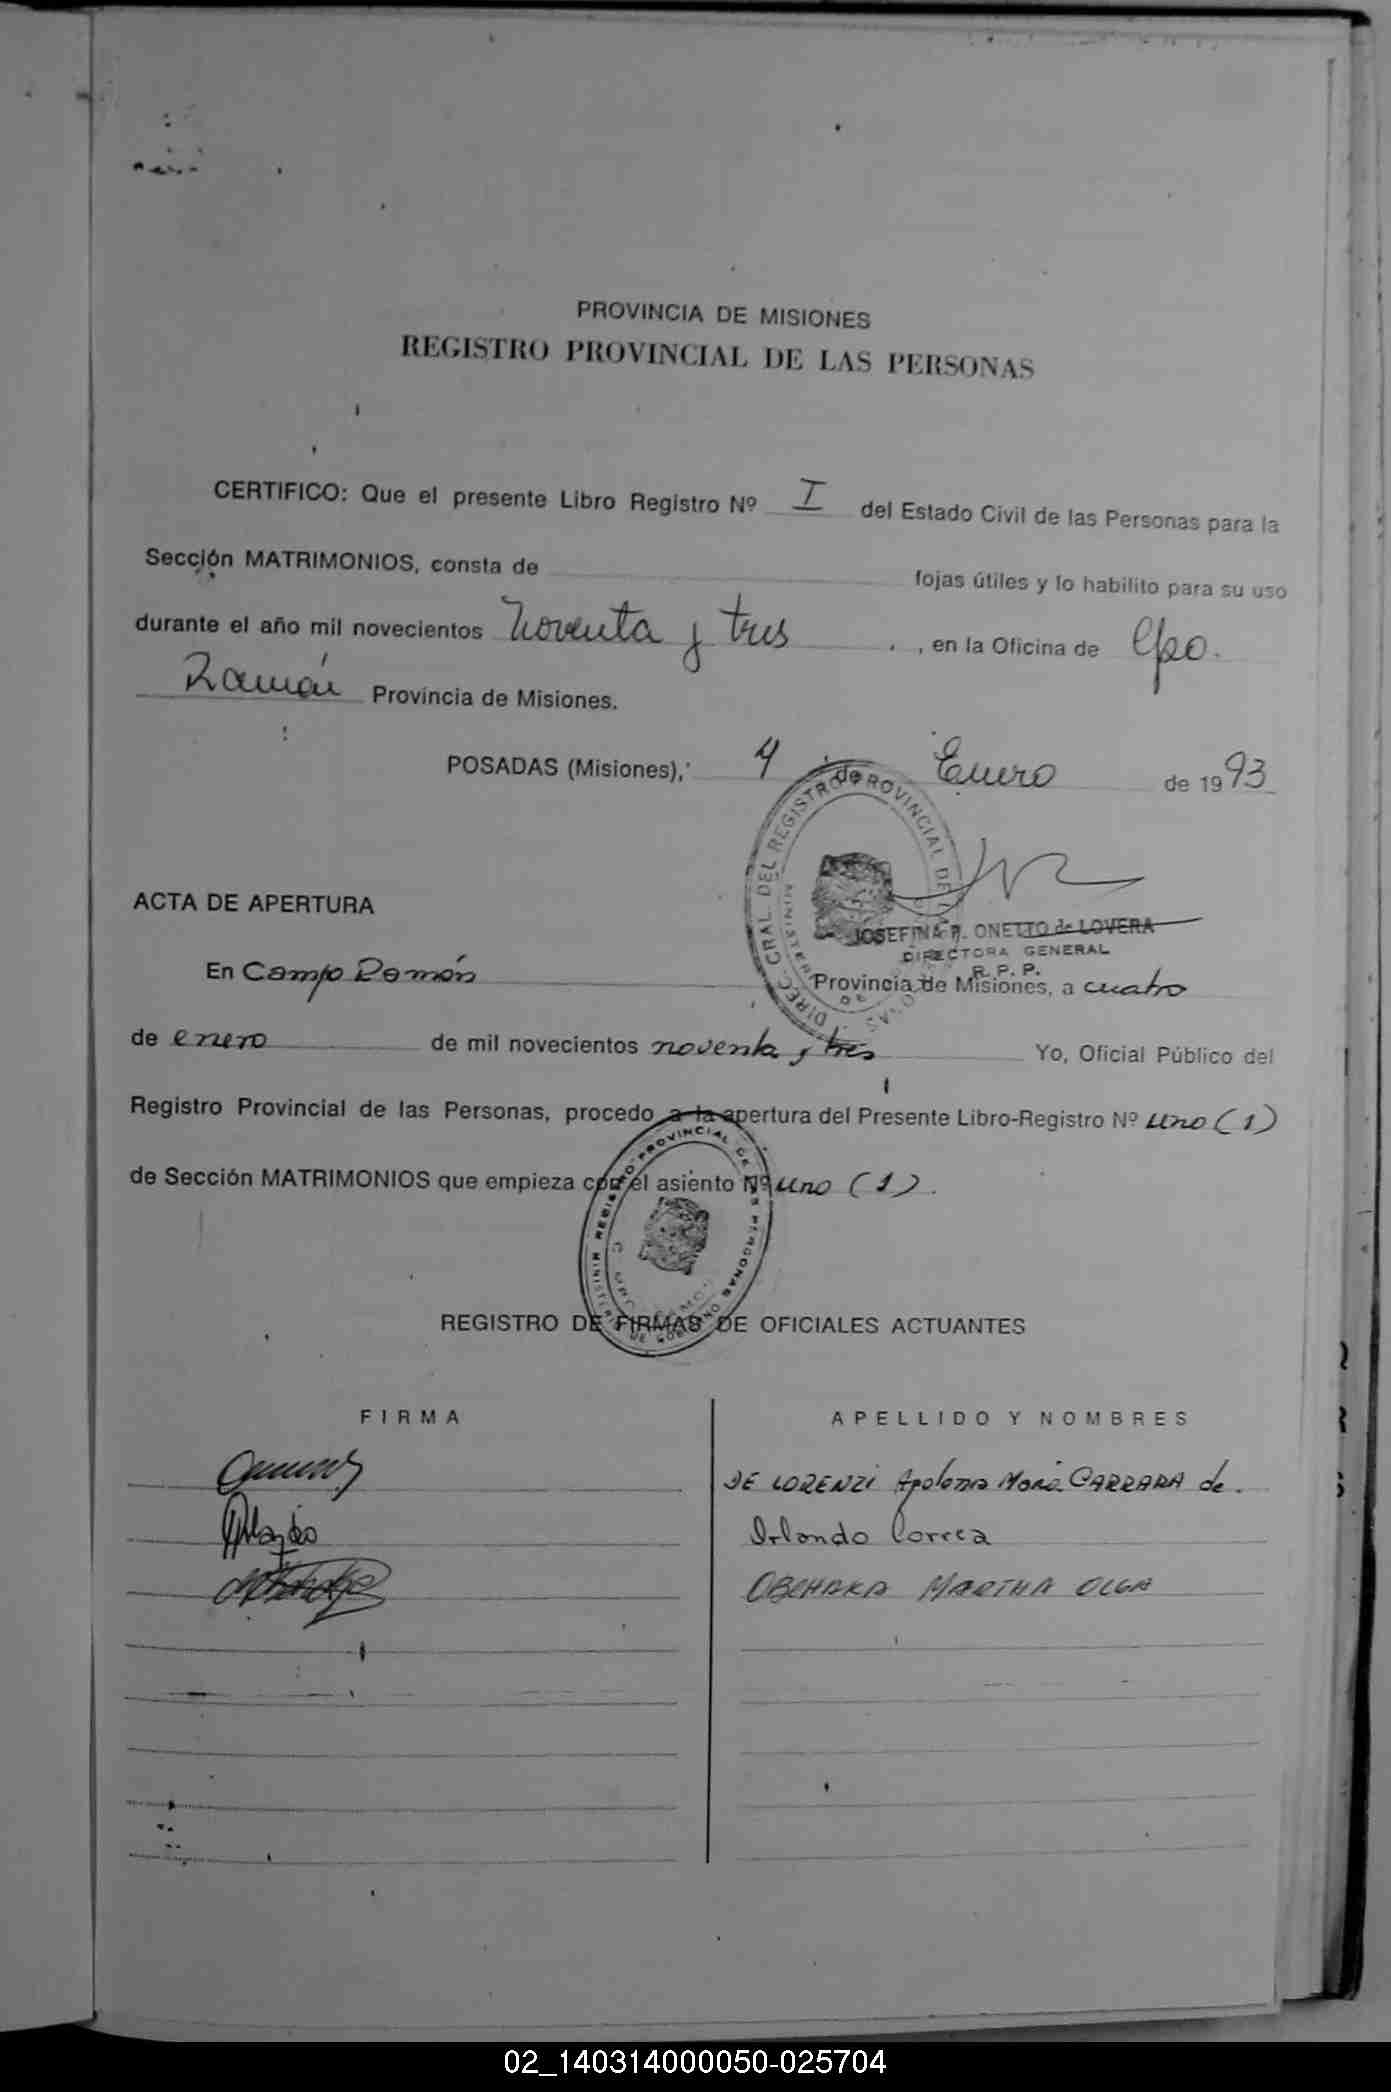 PROVINCIA DE MISIONES
REGISTRO PROVINCIAL DE LAS PERSONAS
CERTIFICO: Que el presente Libro Registro Nº I del Estado Civil de las Personas para la
Sección MATRIMONIOS, consta de fojas útiles y lo habilito para su uso
durante el año mil novecientos noventa y tres , en la Oficina de Cpo.
Ramón Provincia de Misiones.
POSADAS (Misiones), 4 de Enero de 1993
DIREC. GRAL. DEL REGISTRO PROVINCIAL DE LAS
JOSEFINA R. ONETTO de LOVERA
DIRECTORA GENERAL
R. P. P.
ACTA DE APERTURA
En Campo Ramón Provincia de Misiones, a cuatro
de enero de mil novecientos noventa y tres Yo, Oficial Público del
Registro Provincial de las Personas, procedo a la apertura del Presente Libro-Registro Nº uno (1)
de Sección MATRIMONIOS que empieza con el asiento Nº uno (1).
REGISTRO PROVINCIAL DE LAS PERSONAS
MINISTERIO DE GOBIERNO
REGISTRO DE FIRMAS DE OFICIALES ACTUANTES
FIRMA APELLIDO Y NOMBRES
DE LORENZI Apolonia María CARRARA de.
Orlando Correa
OBCHAKA MARTHA OLGA
02_140314000050-025704